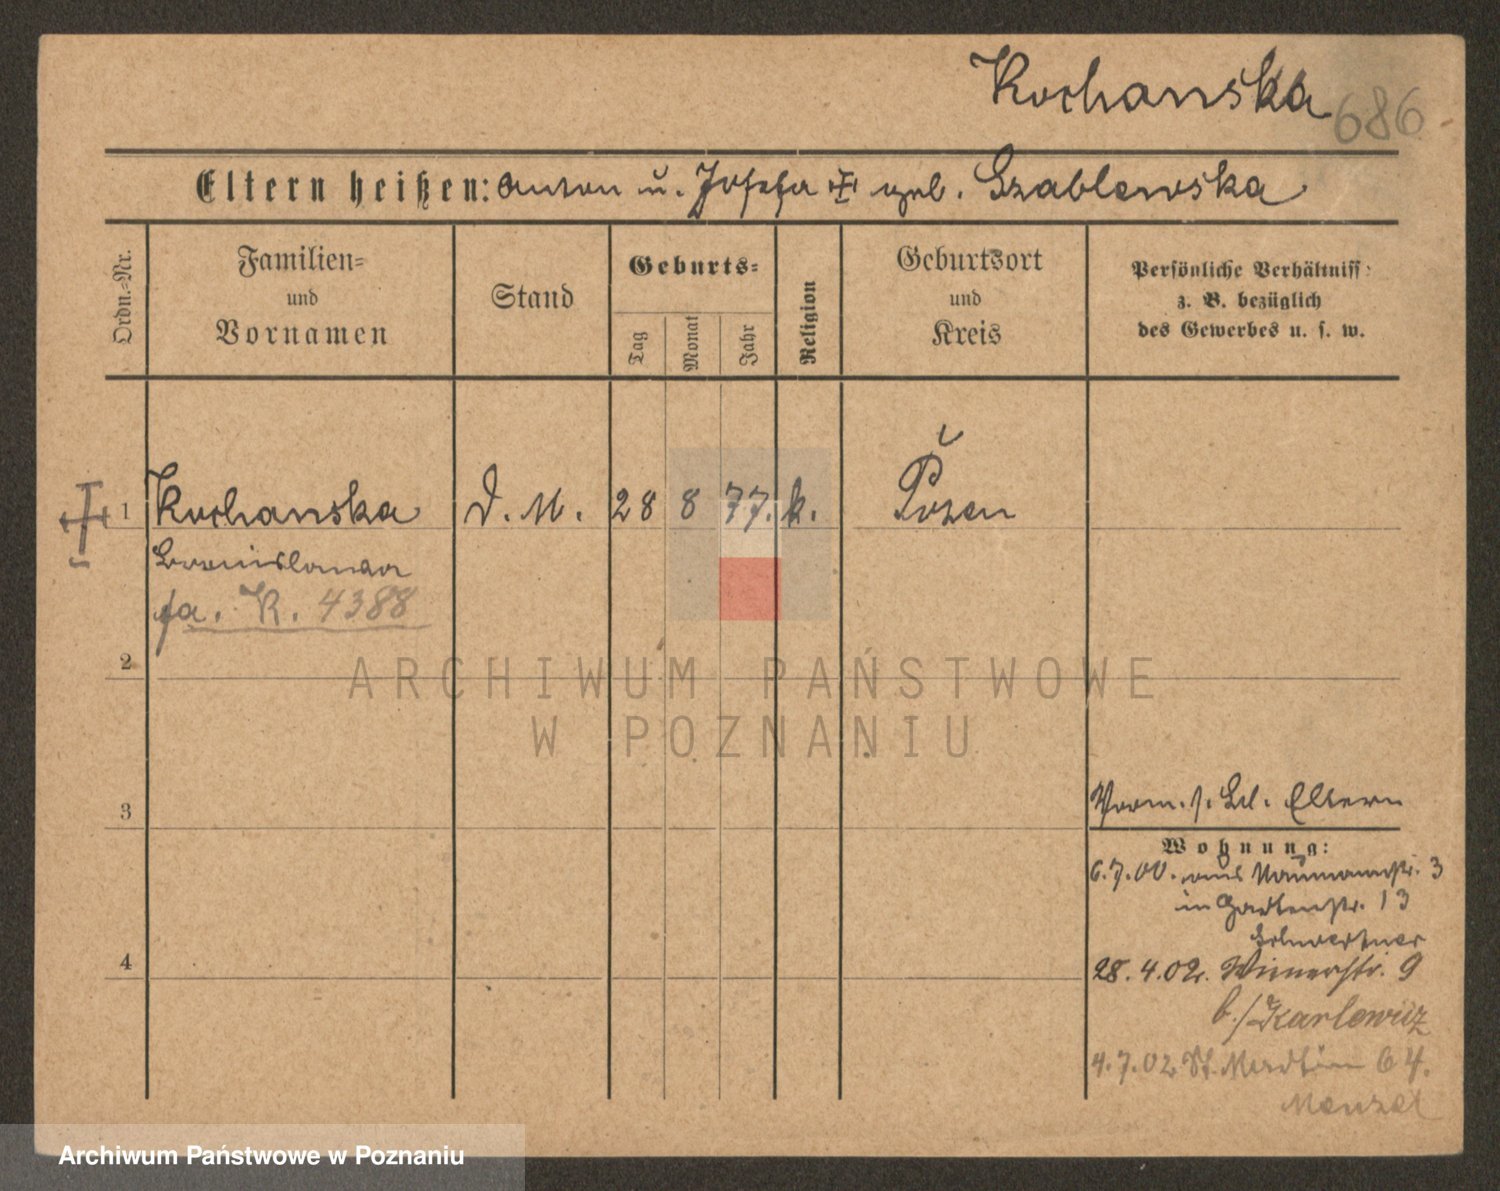 Kochanska
686
Eltern heißen: Anton u. Josefa geb. Szablewska
Ordn.-Nr.
Familien-
und
Vornamen
Stand
Geburts-
Tag
Monat
Jahr
Religion
Geburtsort
und
Kreis
Persönliche Verhältniss
z. B. bezüglich
des Gewerbes u. s. w.
1 Kochanska D. M. 28 8 77. k. Posen
Bronislawa
fa. K. 4388
2
ARCHIWUM PAŃSTWOWE
W POZNANIU
3
Vorm. s. Bl. Eltern
Wohnung:
6.7.00. aus Naumannstr. 3
in Gartenstr. 13
4
28.4.02. Wienerstr. 9
b./Karlowicz
4.7.02 St. Martin 64.
Menzel
Archiwum Państwowe w Poznaniu